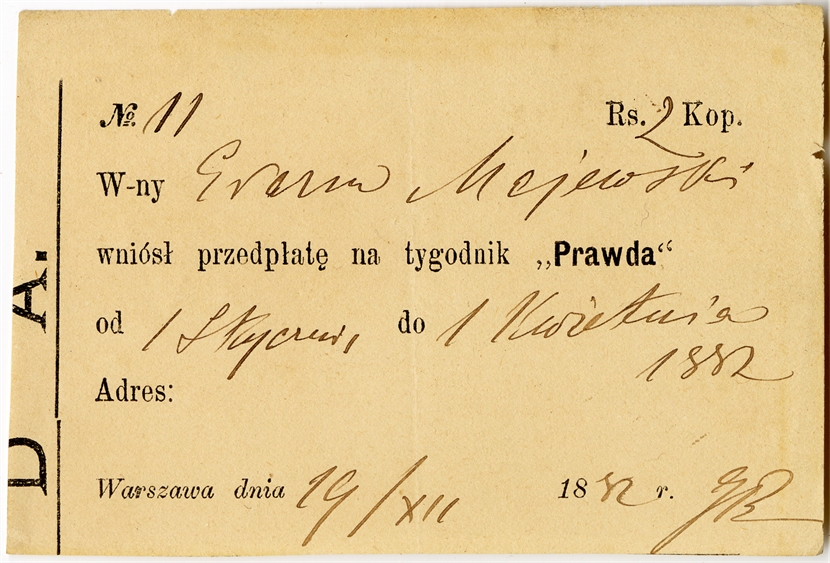 № 11 Rs. 2 Kop.
W-ny Erazm Majewski
wniósł przedpłatę na tygodnik „Prawda“
od 1 Stycznia do 1 Kwietnia
1882
Adres:
Warszawa dnia 19/XII 1882 r.
D A.